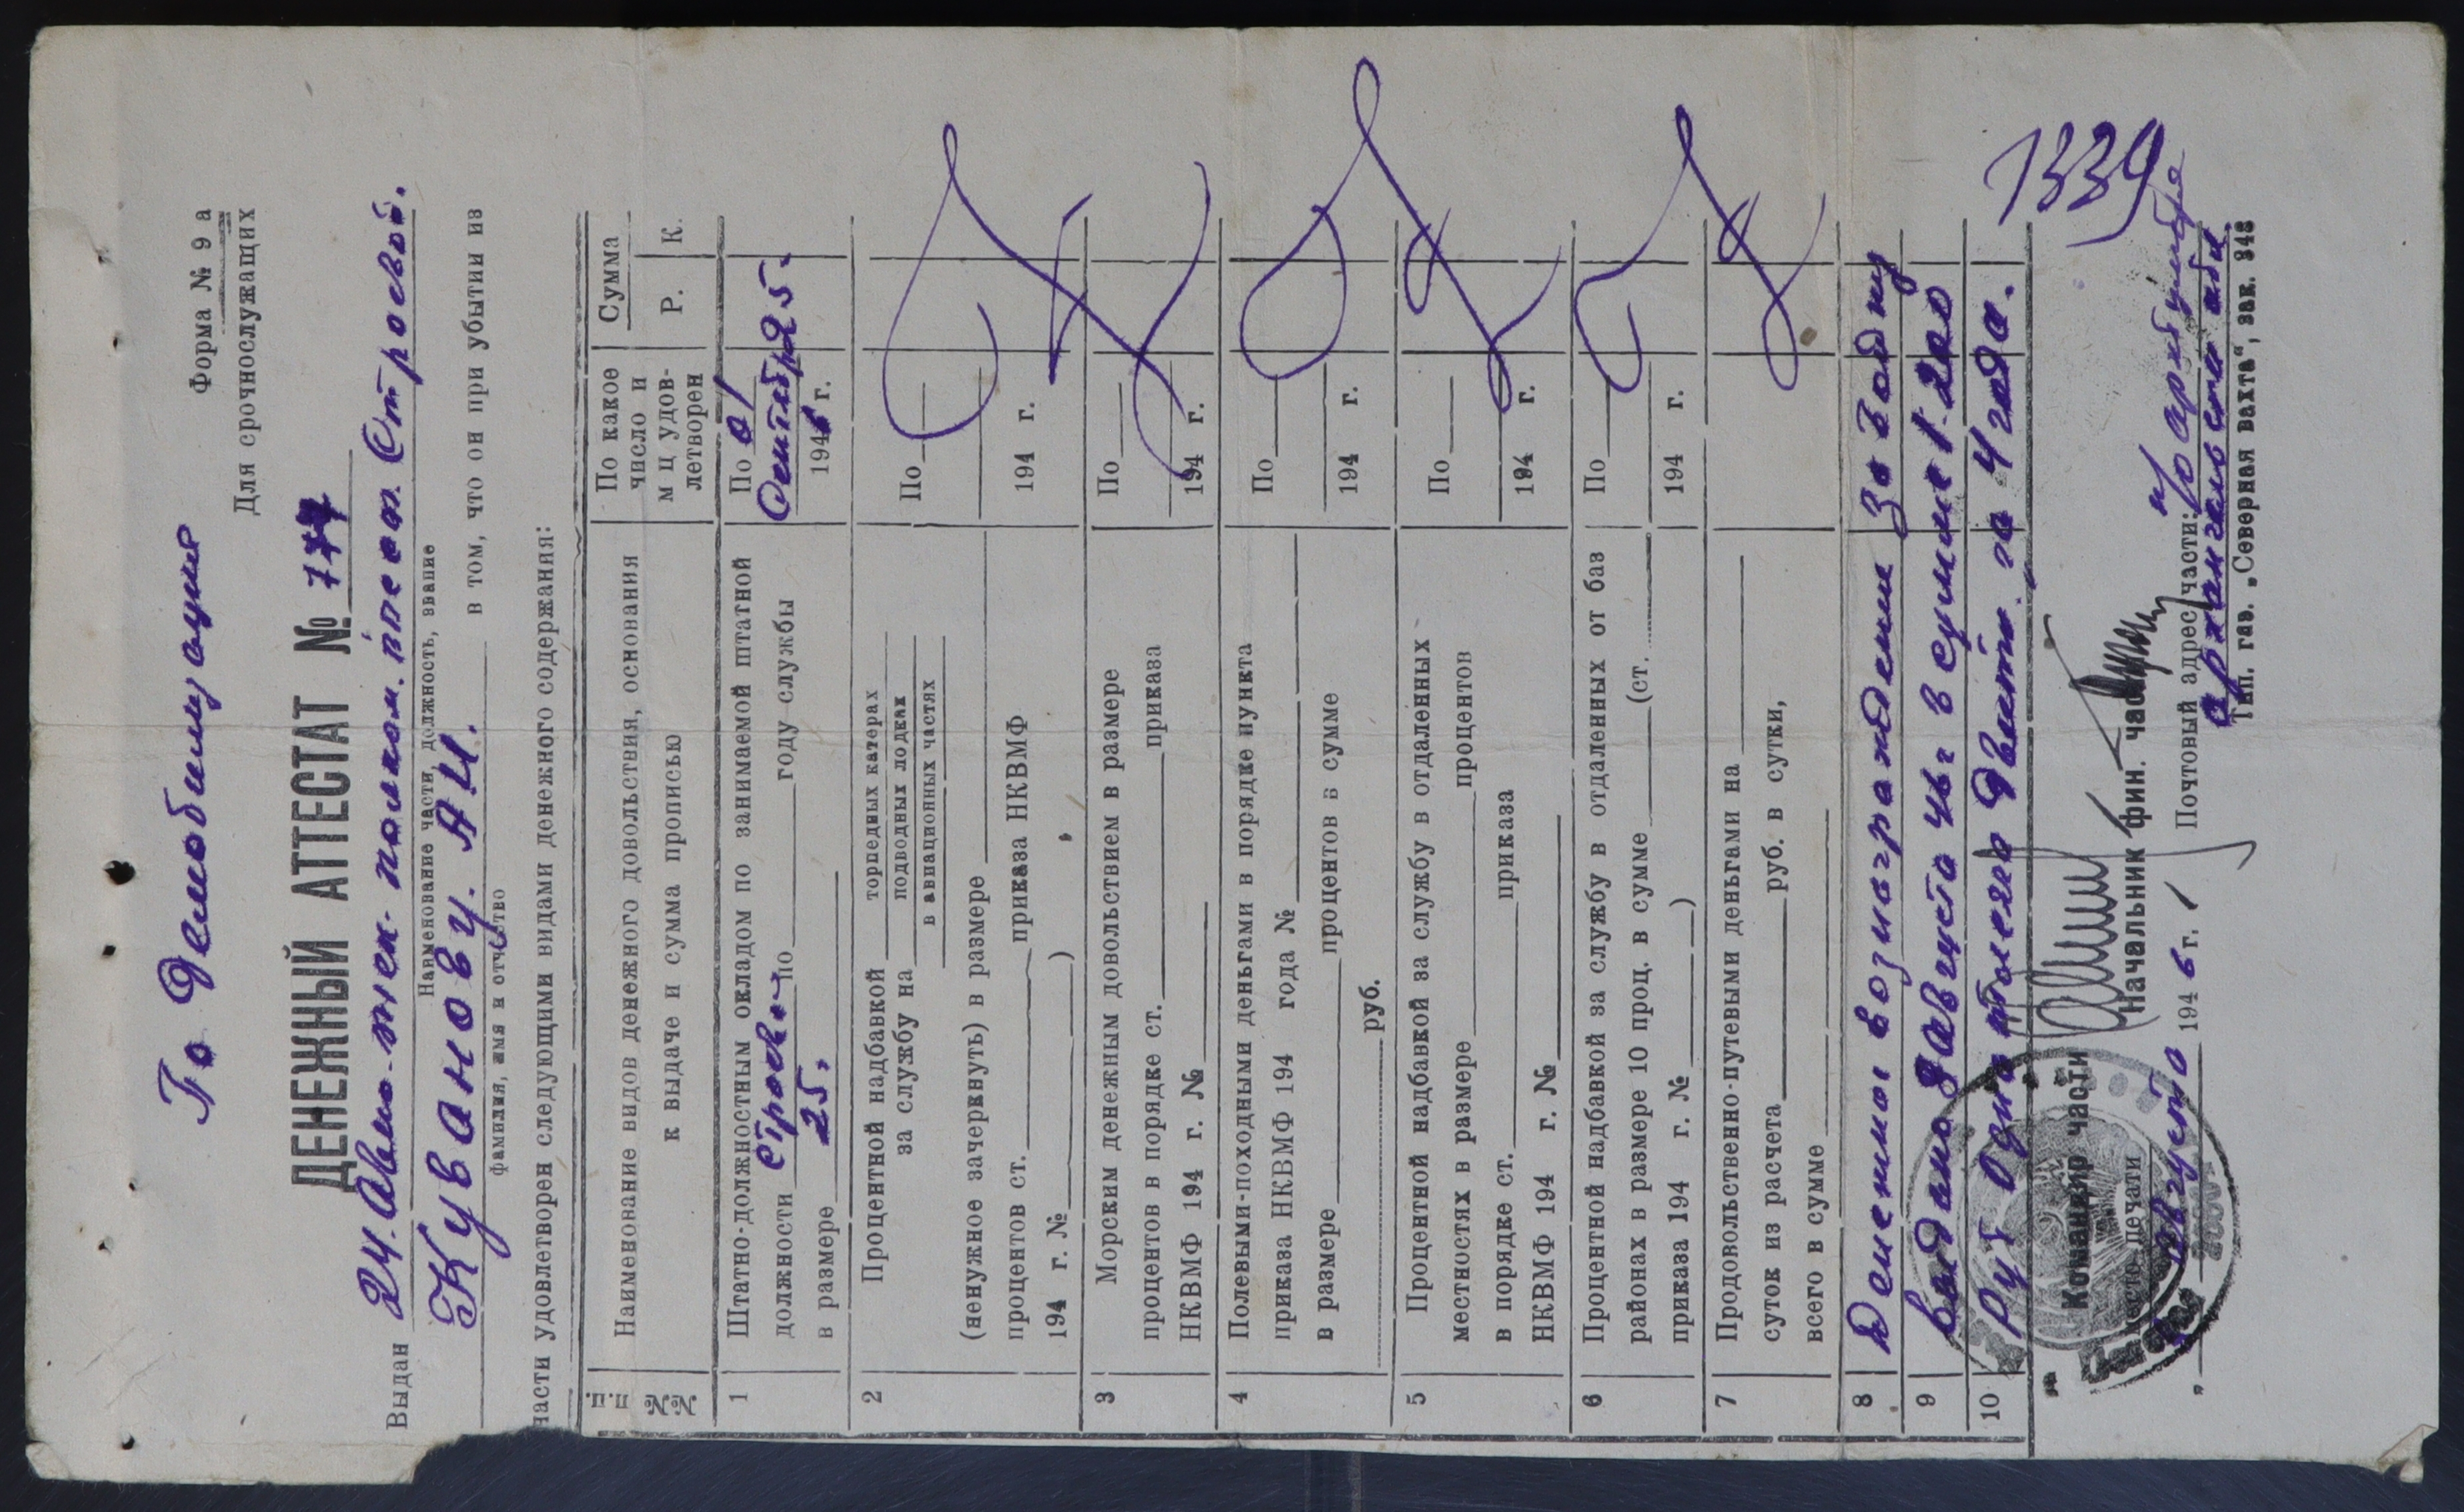 По Демобилизации
Форма № 9 а
Для срочнослужащих
ДЕНЕЖНЫЙ АТТЕСТАТ №
Выдан 24. Строевой.
Наименование части, должность, звание
Куванову. А.И. в том, что он при убытии из
фамилия, имя и отчество
части удовлетворен следующими видами денежного содержания:
№№ п.п.
Наименование видов денежного довольствия, основания
к выдаче и сумма прописью
По какое число и м ц удов-летворен
Сумма
Р. К.
1 Штатно-должностным окладом по занимаемой штатной
должности строевой по году службы
в размере 25.
По 01 Сентября 1946 г. 25-
2 Процентной надбавкой торпедных катерах
за службу на подводных лодках
в авиационных частях
(ненужное зачеркнуть) в размере
процентов ст. приказа НКВМФ
194 г. № )
По 194 г.
3 Морским денежным довольствием в размере
процентов в порядке ст. приказа
НКВМФ 194 г. №
По 194 г.
4 Полевыми-походными деньгами в порядке пункта
приказа НКВМФ 194 года №
в размере процентов в сумме
руб.
По 194 г.
5 Процентной надбавкой за службу в отдаленных
местностях в размере процентов
в порядке ст. приказа
НКВМФ 194 г. №
По 194 г.
6 Процентной надбавкой за службу в отдаленных от баз
районах в размере 10 проц. в сумме (ст.
приказа 194 г. № )
По 194 г.
7 Продовольственно-путевыми деньгами на
суток из расчета руб. в сутки,
всего в сумме
8 Денежное вознаграждение За Выслугу
9 выдано Августа в сумме 1.200
10 Руб Одна тысяча Двести. за 4 года.
1339
Командир части
место печати
Начальник фин. части
" Августа 1946 г.
Почтовый адрес части:
Архангельск
Тип. газ. „Северная вахта", зак. 348